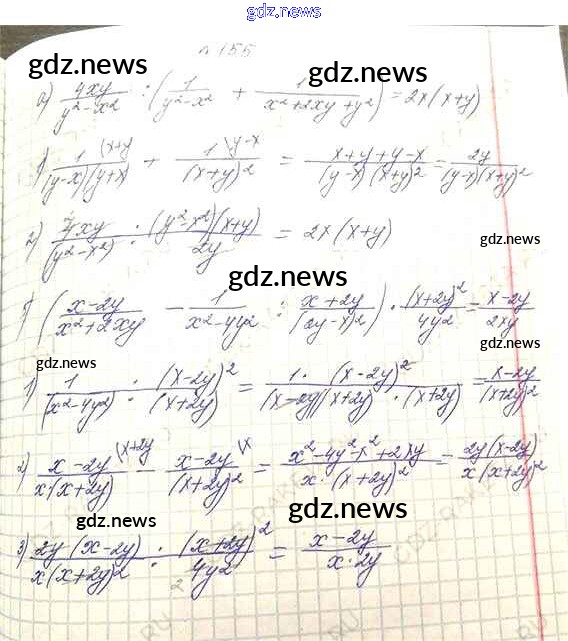 gdz.news
№ 155
gdz.news gdz.news
а) 4xy/(y²-x²) : (1/(y²-x²) + 1/(x²+2xy+y²)) = 2x(x+y)
1) 1(x+y/((y-x)(y+x)) + 1\y-x/(x+y)² = (x+y+y-x)/((y-x)(x+y)²) = 2y/((y-x)(x+y)²)
2) 4xy/(y²-x²) · (y²-x²)(x+y)/2y = 2x(x+y)
gdz.news
gdz.news
б) ((x-2y)/(x²+2xy) - 1/(x²-4y²) : (x+2y)/(2y-x)²) · (x+2y)²/4y² = (x-2y)/2xy
gdz.news
gdz.news
1) 1/(x²-4y²) · (x-2y)²/(x+2y) = 1·(x-2y)²/((x-2y)(x+2y)·(x+2y)) = (x-2y)/(x+2y)²
2) (x-2y(x+2y)/(x(x+2y)) - (x-2y\x)/(x+2y)² = (x²-4y²-x²+2xy)/(x·(x+2y)²) = 2y(x-2y)/(x(x+2y)²)
gdz.news gdz.news
3) 2y(x-2y)/(x(x+2y)²) : (x+2y)²/4y² = (x-2y)/(x·2y)